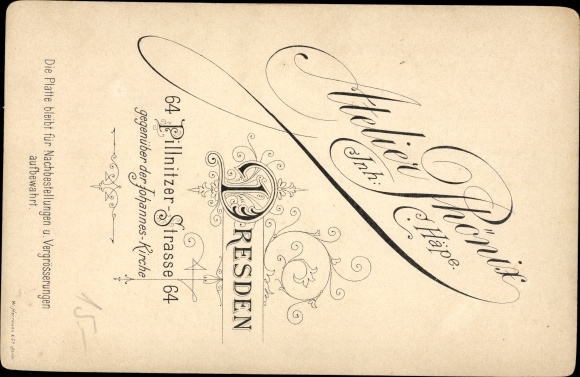 Atelier Phönix
Inh: Häpe.
DRESDEN
64 Pillnitzer-Strasse 64
gegenüber der Johannes-Kirche
Die Platte bleibt für Nachbestellungen u. Vergrösserungen
aufbewahrt.
15-